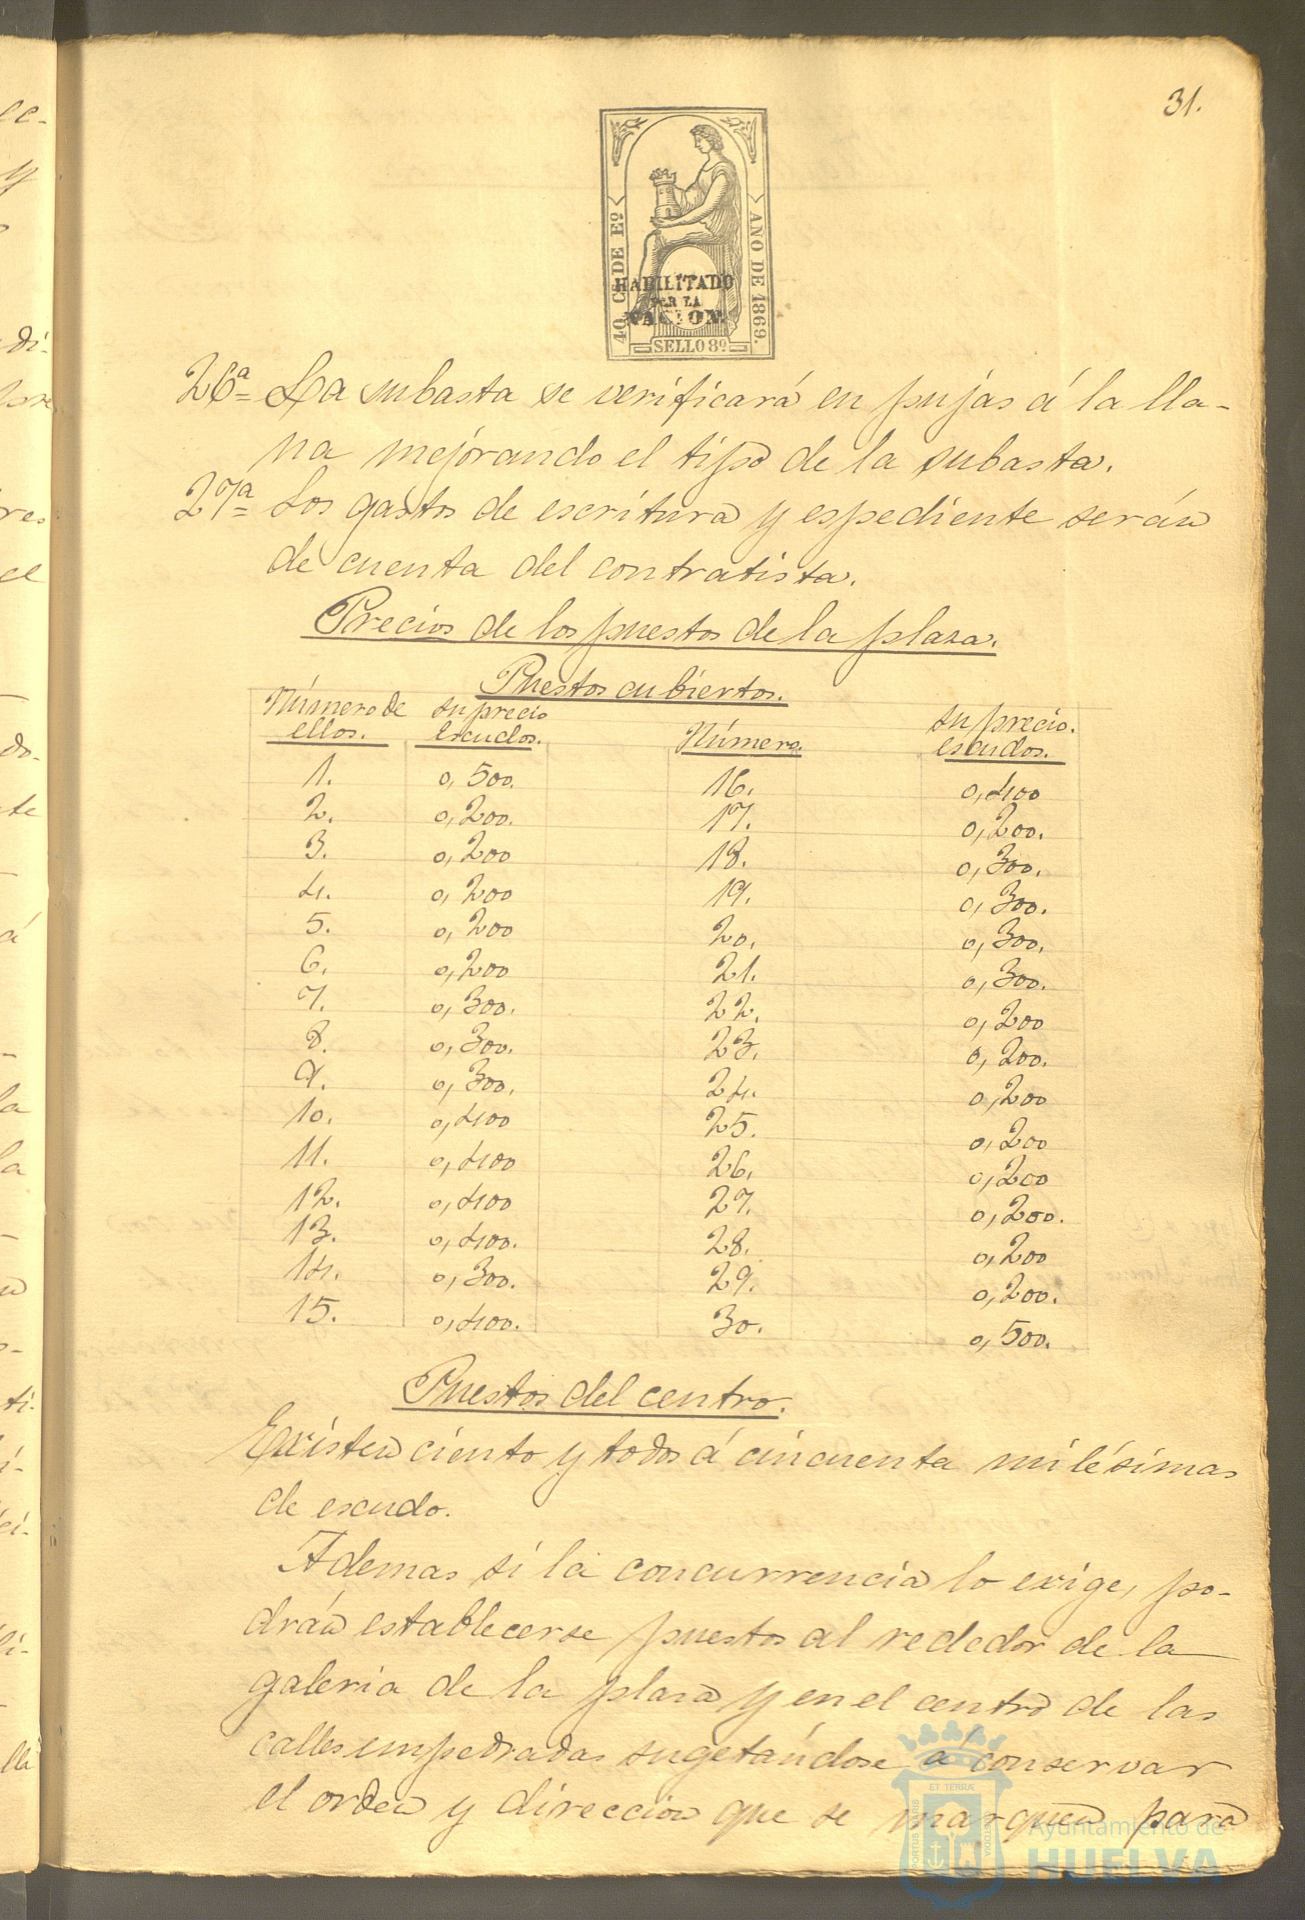 31.
40 Cs DE Eo
AÑO DE 1869.
HABILITADO
POR LA
NACION.
SELLO 8o
26ª La subasta se verificará en pujas á la lla-
na mejorando el tipo de la subasta.
27ª Los gastos de escritura y espediente serán
de cuenta del contratista.
Precios de los puestos de la plaza.
Puestos cubiertos.
Número de ellos. su precio escudos. Número. su precio. escudos.
1. 0,500. 16. 0,400
2. 0,200. 17. 0,200.
3. 0,200 18. 0,300.
4. 0,200 19. 0,300.
5. 0,200 20. 0,300.
6. 0,200 21. 0,300.
7. 0,300. 22. 0,200
8. 0,300. 23. 0,200.
9. 0,300. 24. 0,200
10. 0,400 25. 0,200
11. 0,400 26. 0,200
12. 0,400 27. 0,200.
13. 0,400. 28. 0,200
14. 0,300. 29. 0,200.
15. 0,400. 30. 0,500.
Puestos del centro.
Existen ciento y todos á cincuenta milésimas
de escudo.
Ademas si la concurrencia lo exige, po-
drán establecerse puestos al rededor de la
galeria de la plaza y en el centro de las
calles empedradas sugetándose á conservar
el orden y direccion que se marquen para
ET TERRÆ
PORTUS MARIS
CUSTODIA
Ayuntamiento de
HUELVA